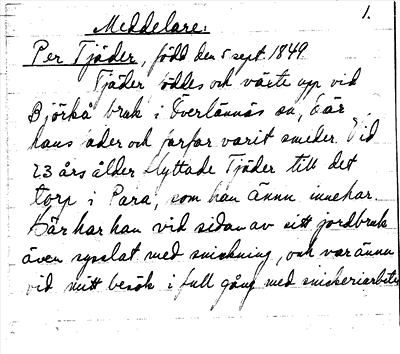 1.
Meddelare:
Per Tjäder, född den 5 sept. 1849.
Tjäder föddes och växte upp vid
Björkå bruk i Överlännäs sn, där
hans fader och farfar varit smeder. Vid
23 års ålder flyttade Tjäder till det
torp i Para, som han ännu innehar.
Där har han vid sidan av sitt jordbruk
även sysslat med snickning, och var ännu
vid mitt besök i full gång med snickeriarbeten